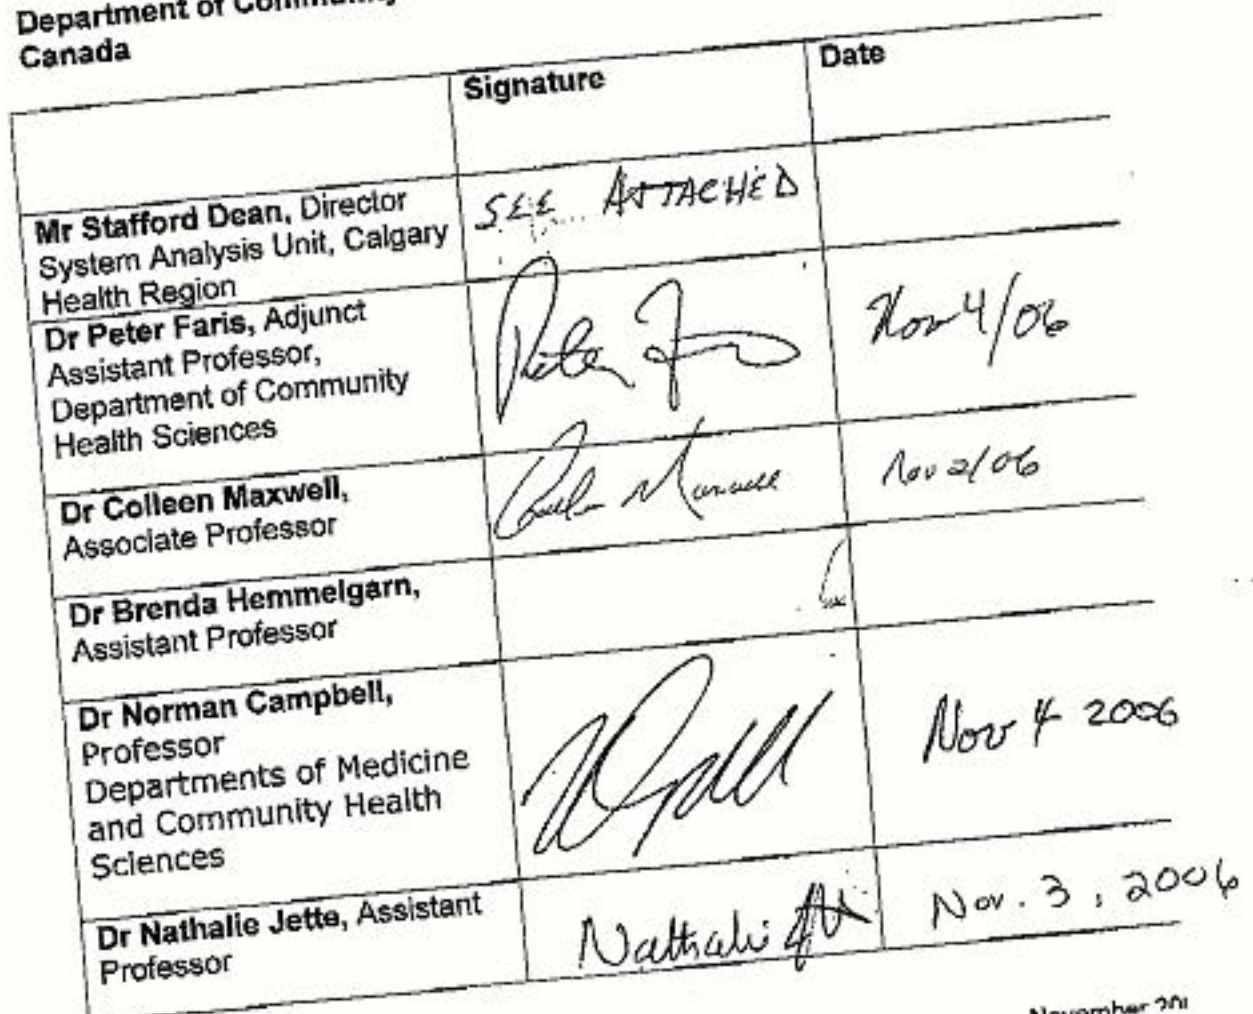 Department of Community
Canada
Signature
Date
Mr Stafford Dean, Director
System Analysis Unit, Calgary
Health Region
SEE ATTACHED
Dr Peter Faris, Adjunct
Assistant Professor,
Department of Community
Health Sciences
Peter
Nov 4/06
Dr Colleen Maxwell,
Associate Professor
Maxwell
Nov 2/06
Dr Brenda Hemmelgarn,
Assistant Professor
Dr Norman Campbell,
Professor
Departments of Medicine
and Community Health
Sciences
Nov 4 2006
Dr Nathalie Jette, Assistant
Professor
Nathalie
Nov. 3, 2006
November